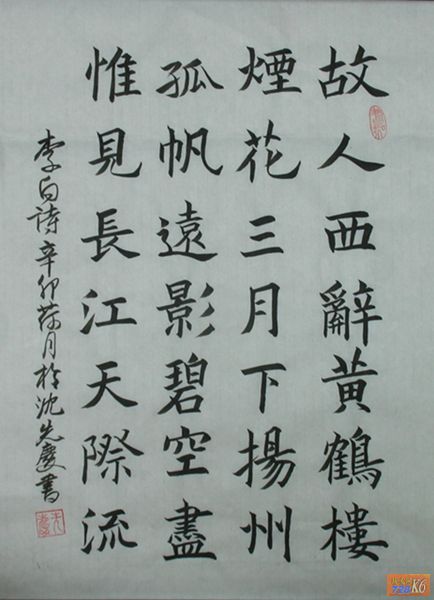 故人西辭黃鶴樓
煙花三月下揚州
孤帆遠影碧空盡
惟見長江天際流
李白詩辛卯荷月於沈先慶書
K6